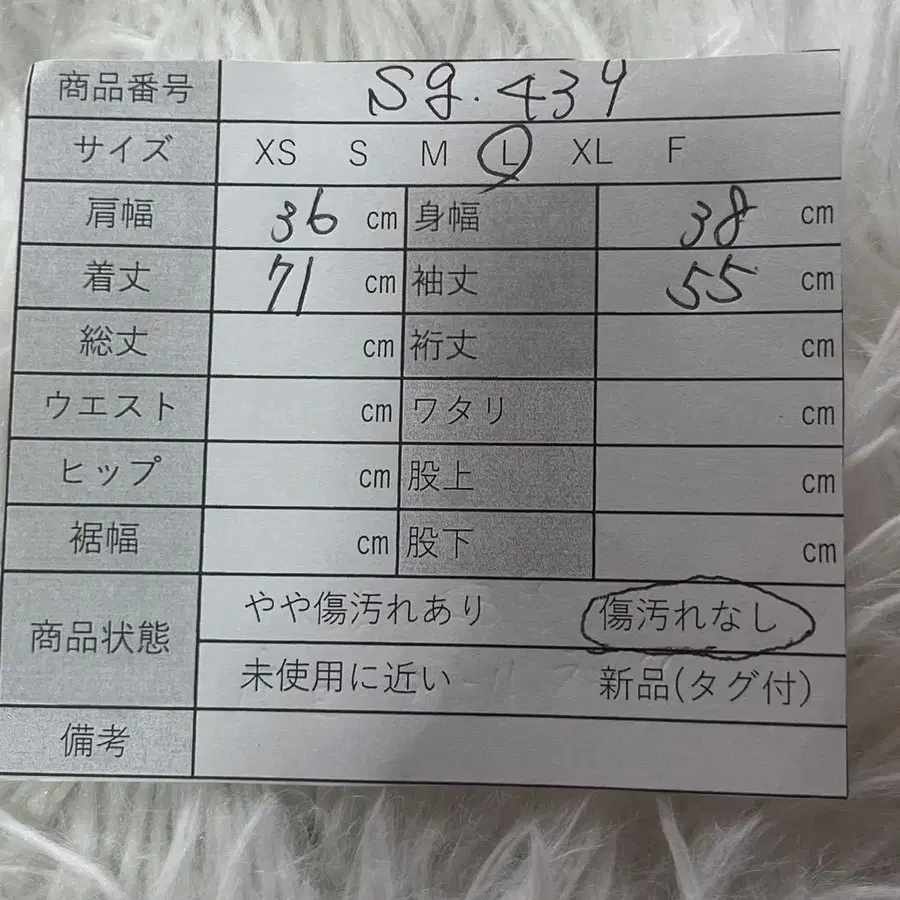 商品番号 Sg.439
サイズ XS S M L XL F
肩幅 36 cm 身幅 38 cm
着丈 71 cm 袖丈 55 cm
総丈 cm 裄丈 cm
ウエスト cm ワタリ cm
ヒップ cm 股上 cm
裾幅 cm 股下 cm
商品状態 やや傷汚れあり 傷汚れなし
未使用に近い 新品(タグ付)
備考